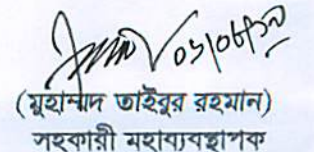 ০১/০৮/১৯
(মুহাম্মদ তাইবুর রহমান)
সহকারী মহাব্যবস্থাপক